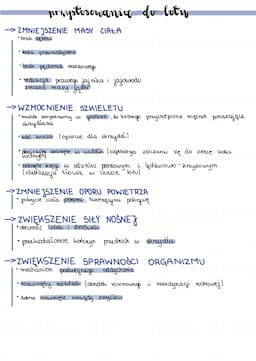 przystosowania do lotu
→ ZMNIEJSZENIE MASY CIAŁA
• brak zębów
• kości pneumatyczne
• brak pęcherza moczowego
• redukcja prawego jajnika i jajowodu
zmiana masy gonad
→ WZMOCNIENIE SZKIELETU
• mostek zaopatrzony w grzebień, do którego przyczepione mięśnie poruszające skrzydłami
• kość krucza (oparcie dla skrzydeł)
• obojczyki zrośnięte w widełki (zapobiega zbliżaniu się do siebie kości kruczych)
• zrośnięte kręgi w odcinku piersiowym i lędźwiowo-krzyżowym
(stabilizacja tułowia w czasie lotu)
→ ZMNIEJSZENIE OPORU POWIETRZA
• pokrycie ciała piórami, tworzącymi pokrywę
→ ZWIĘKSZENIE SIŁY NOŚNEJ
• obecność lotek i sterówek
• przekształcenie kończyn przednich w skrzydła
→ ZWIĘKSZENIE SPRAWNOŚCI ORGANIZMU
• mechanizm podwójnego oddychania
• rozwinięty móżdżek (ośrodek równowagi i koordynacji ruchowej)
• dobrze rozwinięte narządy zmysłów